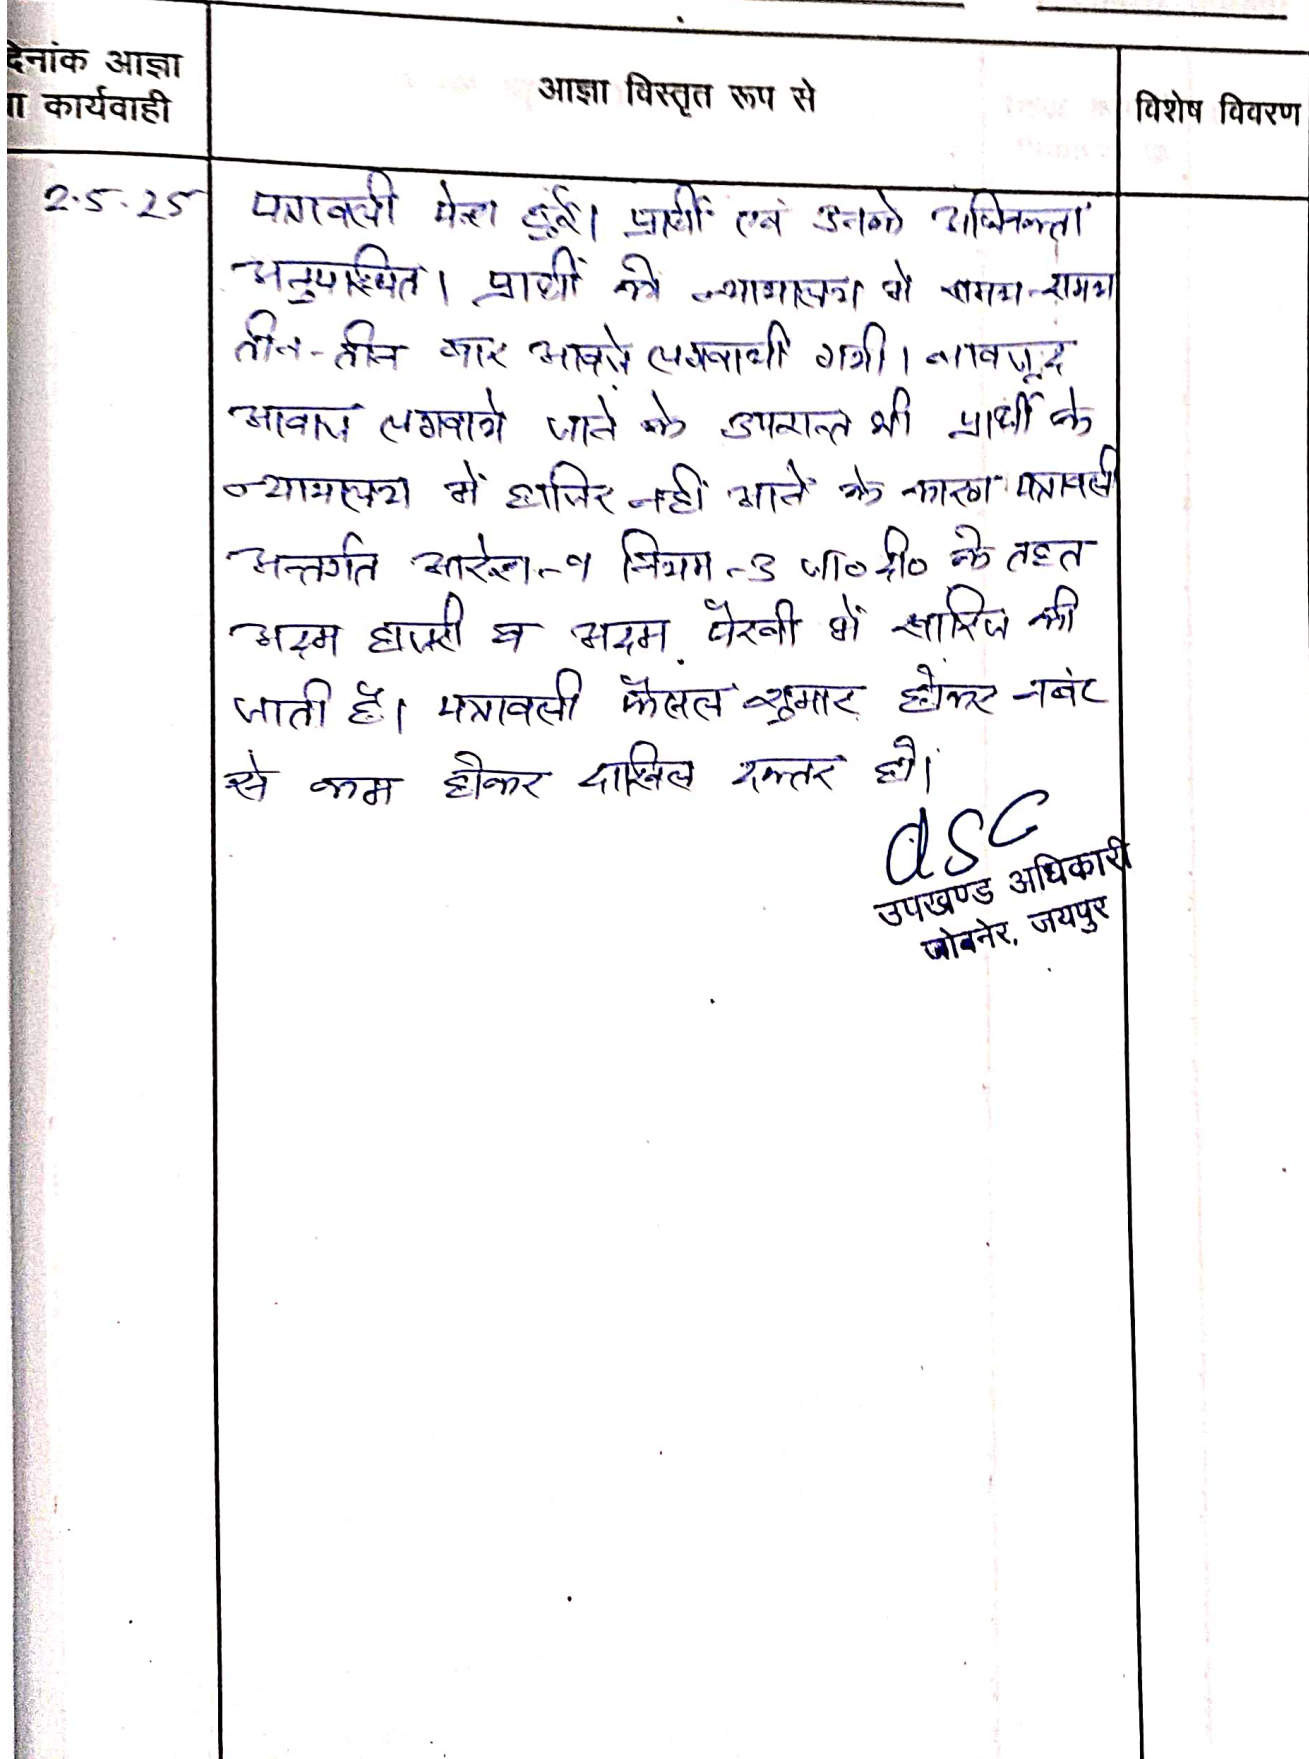 देनांक आज्ञा
ा कार्यवाही
आज्ञा विस्तृत रूप से
विशेष विवरण
2.5.25
पत्रावली पेश हुई। प्रार्थी एवं उनके अधिवक्ता
अनुपस्थित। प्रार्थी को न्यायालय में समय-समय
तीन-तीन बार आवाजे लगवायी गयी। बावजूद
आवाज लगवाये जाने के उपरान्त भी प्रार्थी के
न्यायालय में हाजिर नहीं आने के कारण पत्रावली
अन्तर्गत आदेश-९ नियम-३ जा०दी० के तहत
अदम हाजरी व अदम पैरवी में खारिज की
जाती है। पत्रावली फैसल शुमार होकर नबंर
से कम होकर दाखिल दफ्तर हो।
उपखण्ड अधिकारी
जोबनेर, जयपुर